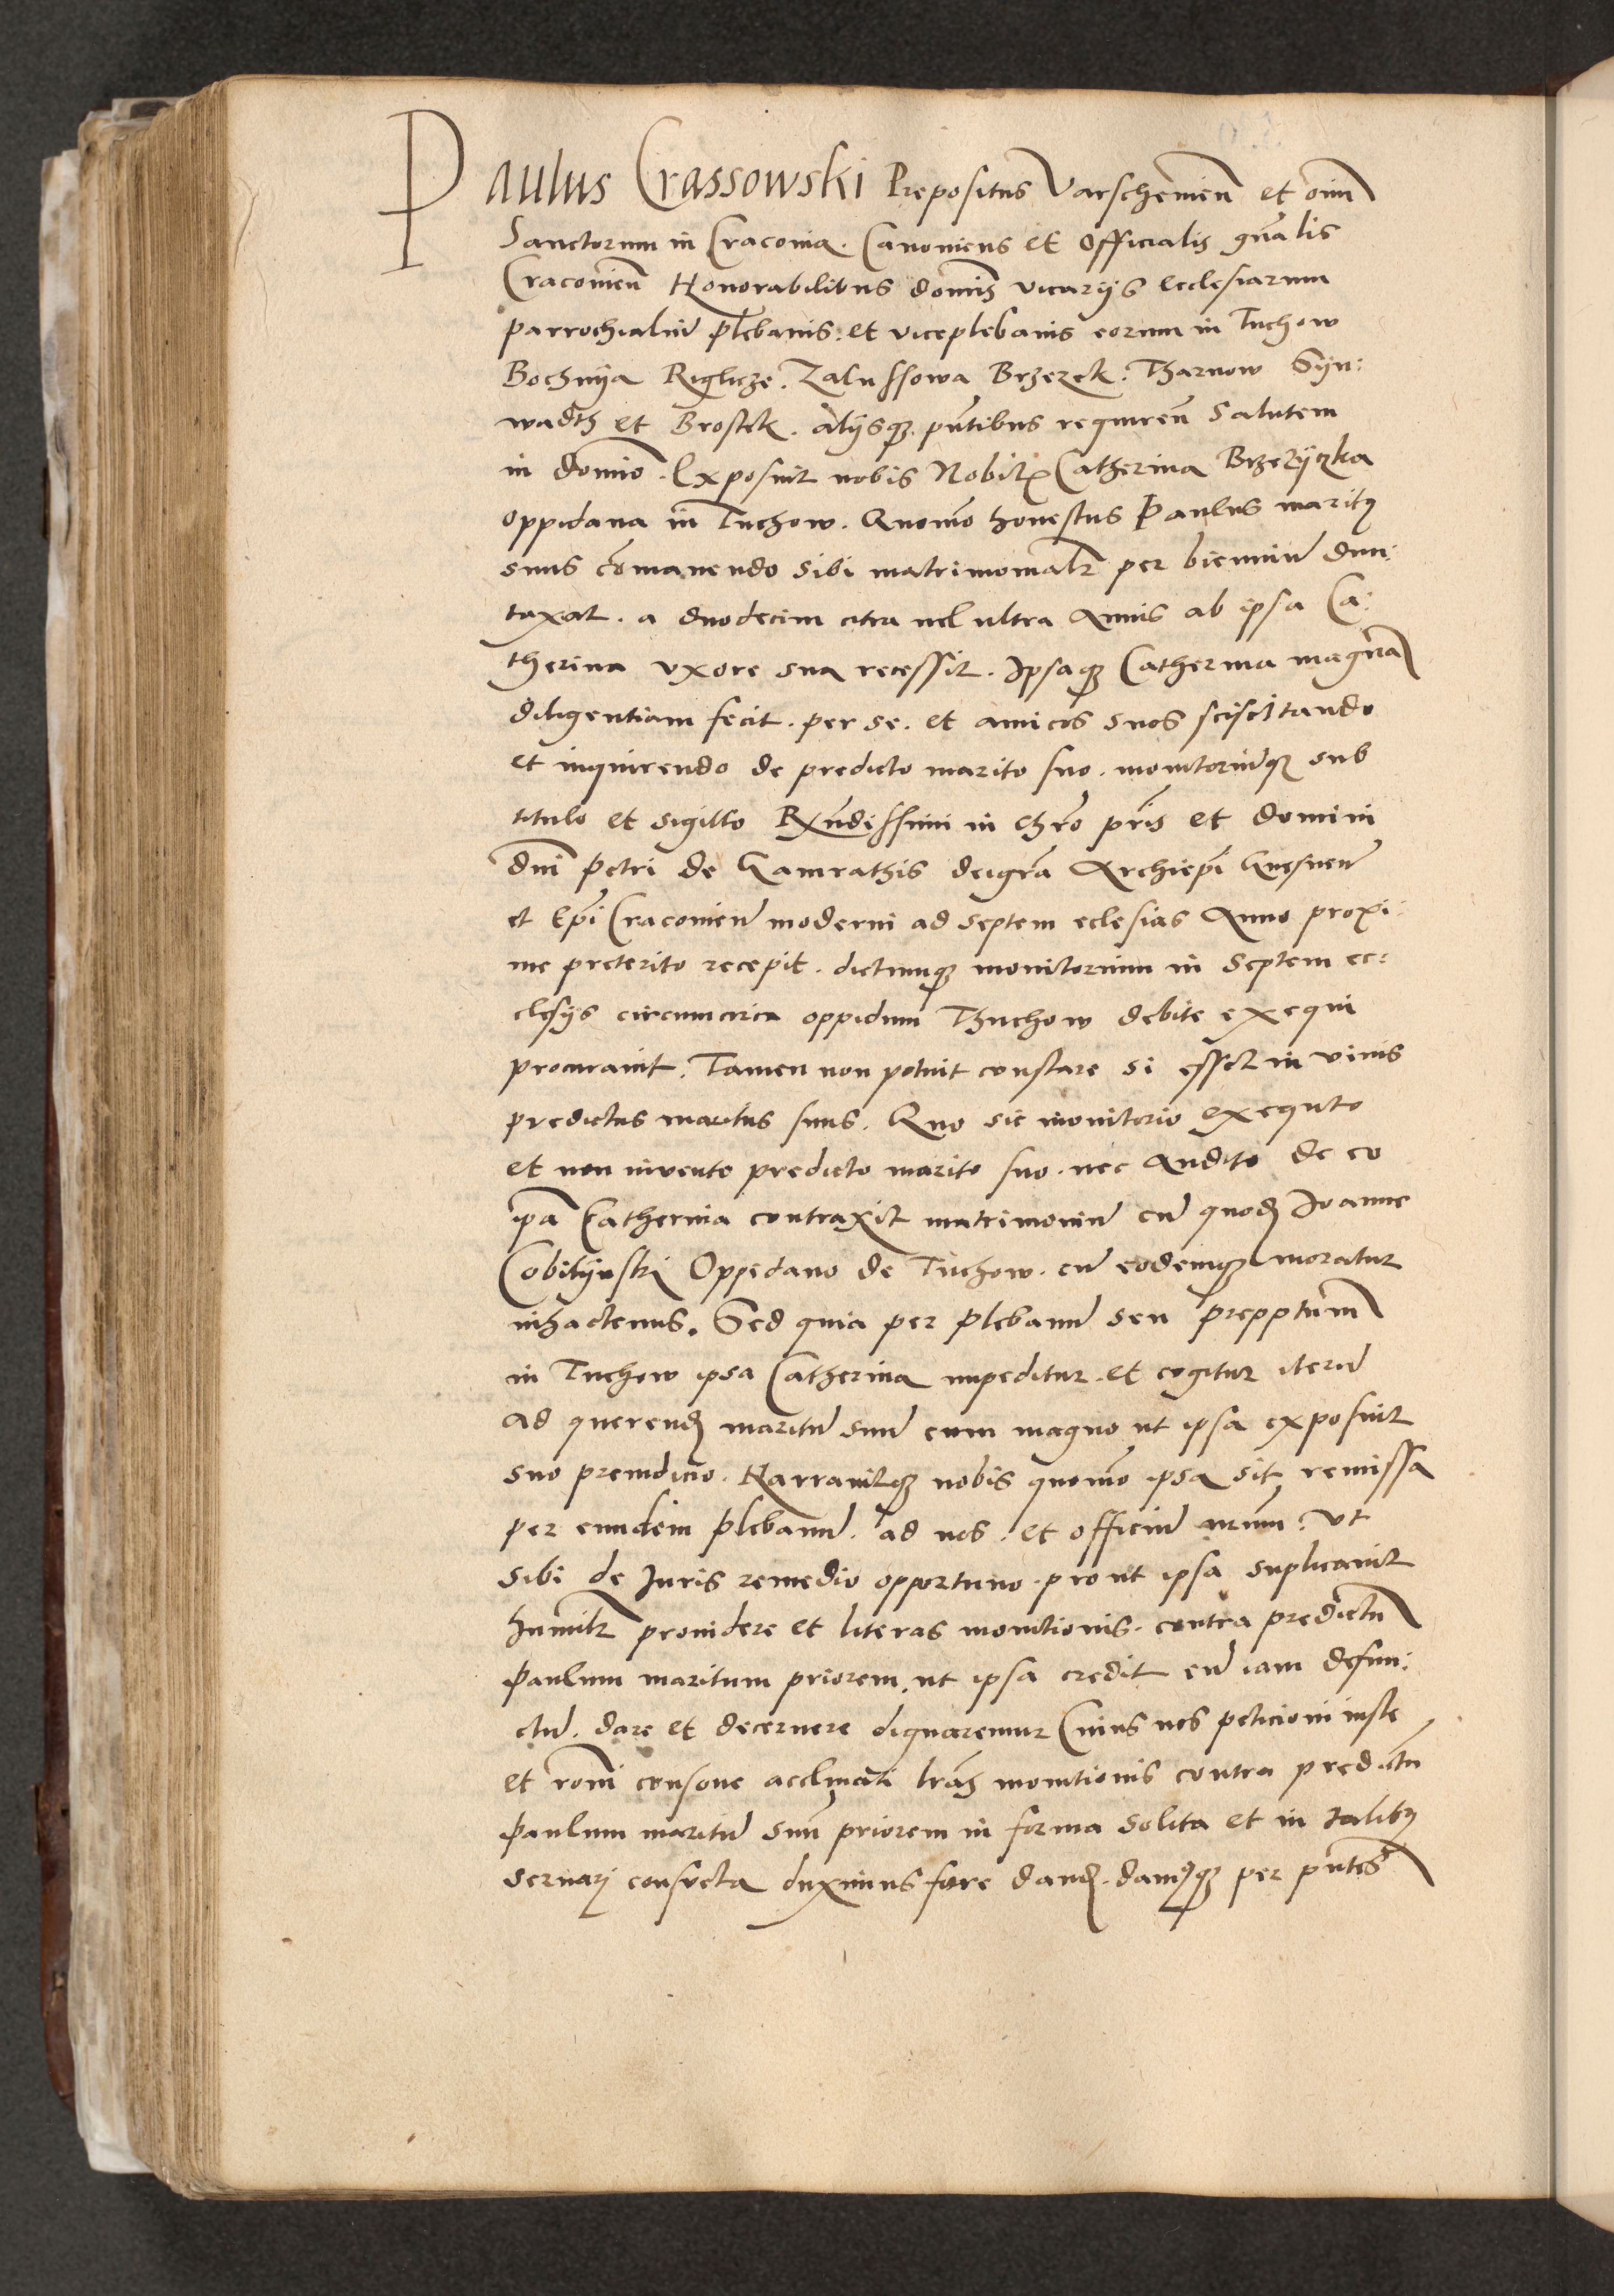 Paulus Crassowski Prepositus Varschemien̄ et oīm
Sanctorum in Craconia. Canonicus et Officialis gn̄alis
Cracovien̄ Honorabilibus dom̄is vicarijs ecclesiarum
parrochialiū plebanis. et viceplebanis eorum in Tuchow
Bochnya Riglicze. Zalussowa Brzezek. Tharnow Syn:
wadth et Brostek. alijsqꝫ pn̄tibus requiren̄ Salutem
in domīo. Exposuit nobis Nobil̄ Catherina Brzezyczka
oppidana in Tuchow. Quōmo honestus Paulus maritꝰ
suus cōmanendo sibi matrimonial̄r per bienniū dun:
taxat. a duodecim citra vel ultra Annis ab ipsa Ca:
therina uxore sua recessit. Ipsaqꝫ Catherina magnā
diligentiam fecit. per se. et amicos suos sciscitando
et inquirendo de predicto marito suo. monitoriūqꝫ sub
titulo et sigillo Rn̄dissimi in chr̄o pr̄is et domini
dn̄i Petri de Gamrathis deigr̄a Archiep̄i Gnesnen̄
et Ep̄i Cracovien̄ moderni ad septem eclesias Anno proxi:
me preterito recepit. dictumqꝫ monitorium in septem ec:
clesijs circumcirca oppidum Thuchow debite exequi
procuravit. Tamen non potuit constare si esset in vivis
predictus maritus suus. Quo sic monitorio exequto
et non invento predicto marito suo. nec audito de eo
ip̄a Catherina contraxit matrimoniū cū quodā Joanne
Cobilynski Oppidano de Tuchow. cū eodemqꝫ moratur
inhactenus. Sed quia per plebanū seu prepptum̄
in Tuchow ipsa Catherina impeditur. et cogitur iterū
ad querend̄ maritū suū cum magno ut ipsa exposuit
suo preiudicio. Narravitqꝫ nobis quōmo ipsa sit remissa
per eundem plebanū. ad nos. et officiū nr̄um. Ut
sibi de Juris remedio opportuno. prout ipsa suplicavit
humil̄r providere et literas monitionis. contra predictū
Paulum maritum priorem. ut ipsa credit eū iam defun:
ctū. dare et decernere dignaremur Cuius nos peticioni iuste
et rōni consone acclinati lr̄as monitionis contra predictū
Paulum maritū suū priorem in forma solita et in talibꝰ
servari consveta duximus fore dand̄. damꝰqꝫ per pn̄tes